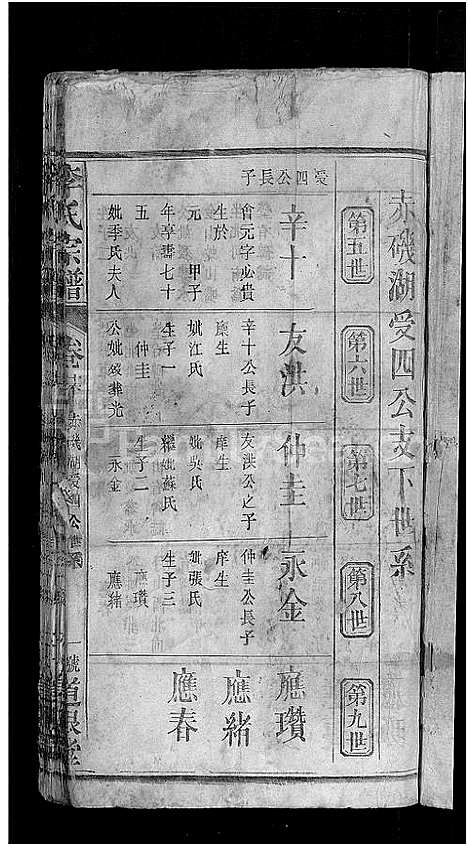 赤磯湖受四公支下世系
第五世
第六世
第七世
第八世
第九世
受四公長子
辛十
會元字必貴
生於
元 甲子
年享壽七十
五
妣季氏夫人
友洪
辛十公長子
庠生
妣江氏
生子一
仲圭
公妣 葬光
仲圭
友洪公之子
庠生
妣吳氏
繼妣蘇氏
生子二
永金
永金
仲圭公長子
庠生
妣張氏
生子三
應瓚
應緒
應瓚
應緒
應春
李氏宗譜
卷
赤磯湖受四公世系
一
號